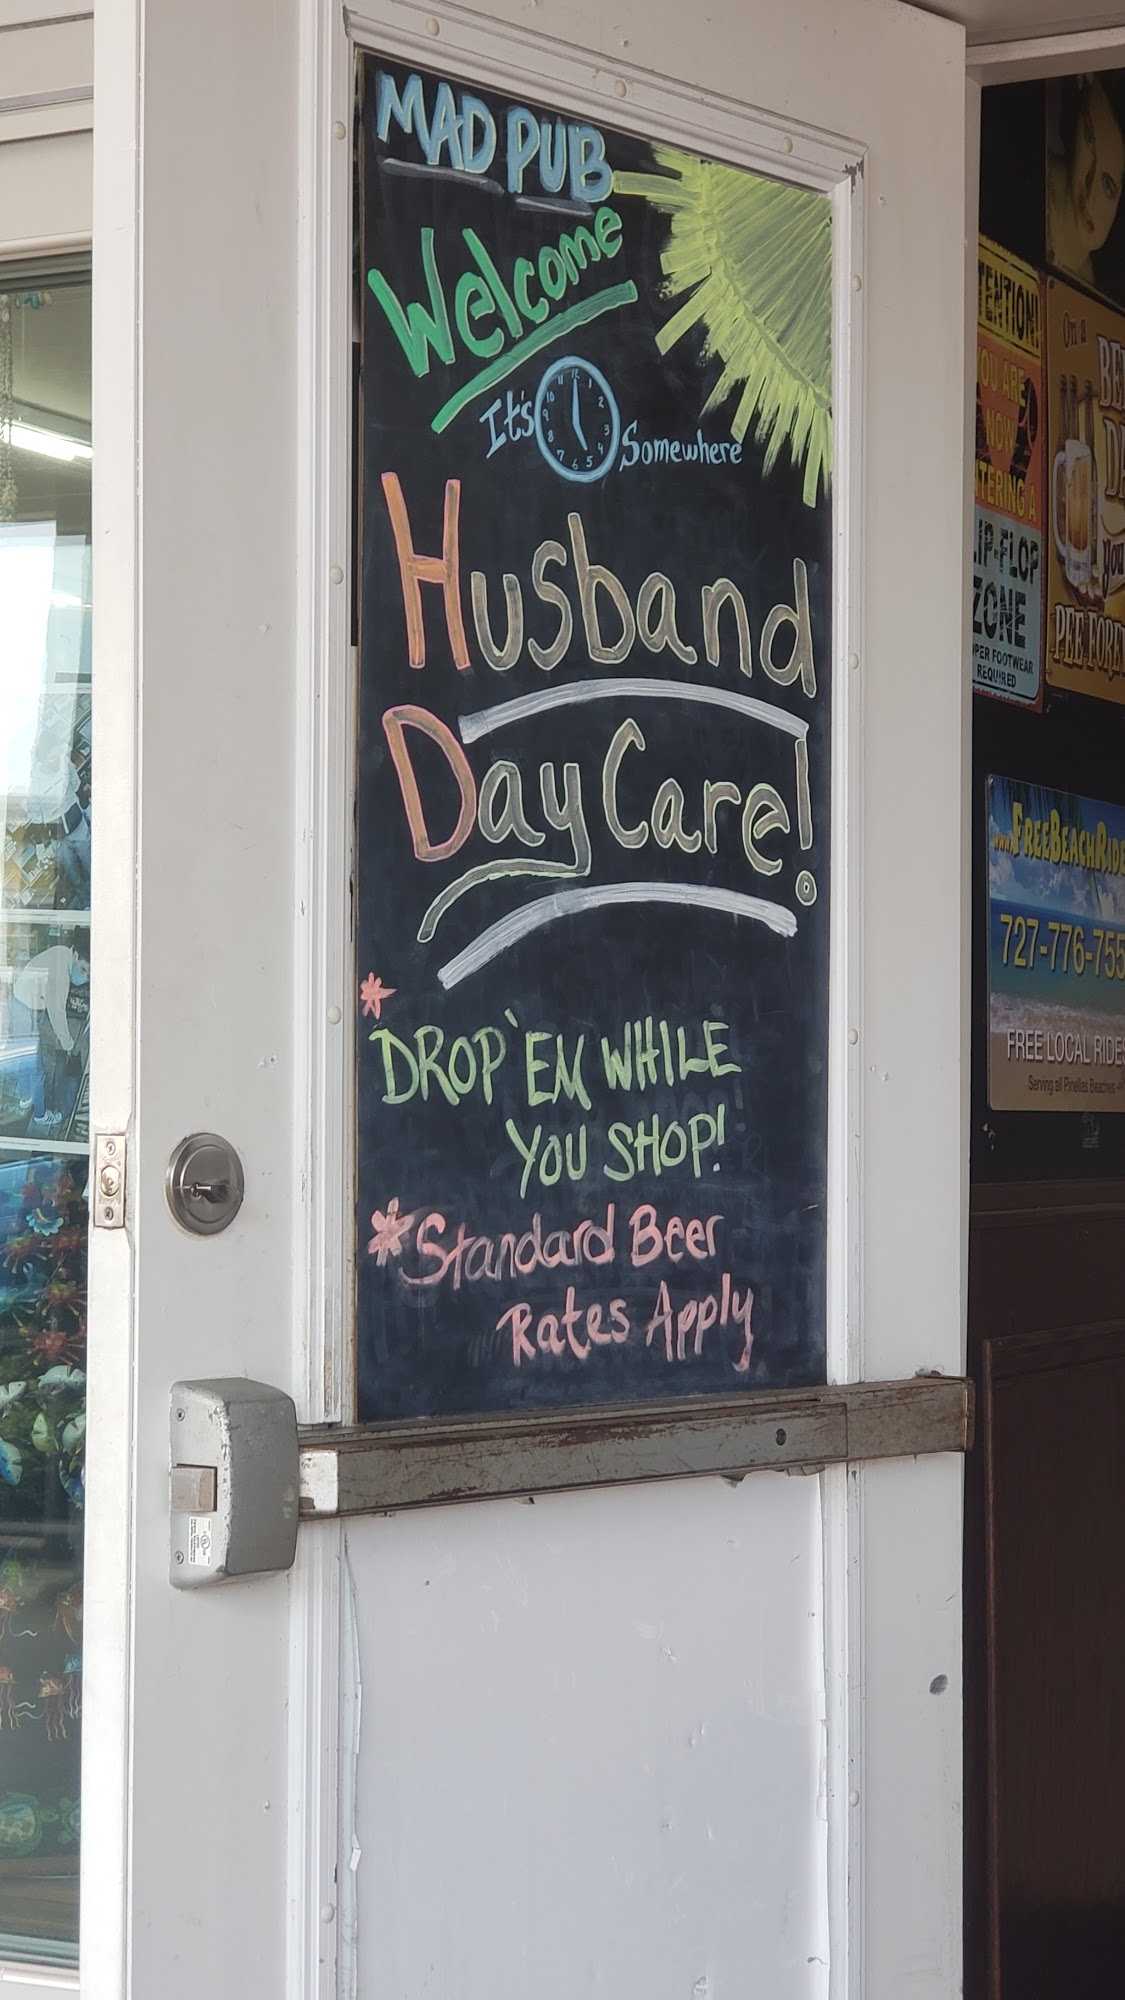 MAD PUB
Welcome
It's
11 12 1
10 2
9 3
8 4
7 6 5
Somewhere
Husband
Day Care!
*
DROP 'EM WHILE
YOU SHOP!
*Standard Beer
Rates Apply
TENTION!
YOU ARE
NOW
TERING A
LIP-FLOP
ZONE
PER FOOTWEAR
REQUIRED
On a
you
PEE FORE
www.FREEBEACHRIDE
727-776-755
FREE LOCAL RIDES
Serving all Pinellas Beaches